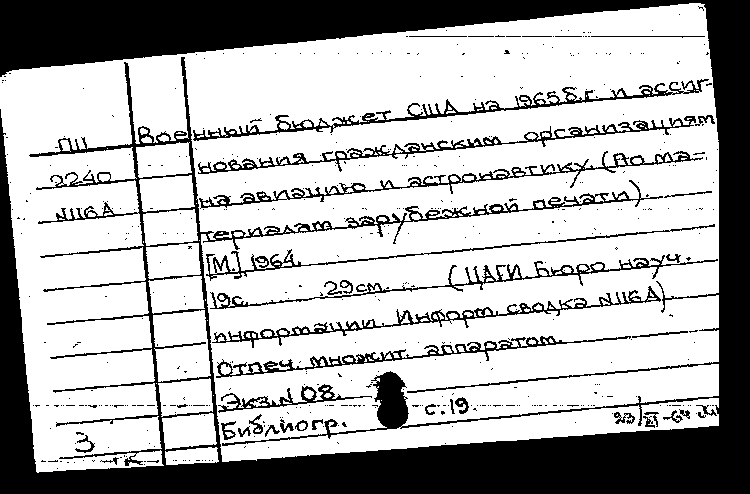 ПII Военный бюджет США на 1965б.г. и ассиг-
2240 нования гражданским организациям
N116А на авиацию и астронавтику. (По ма-
териалам зарубежной печати).
[М.], 1964.
19с. 29см. (ЦАГИ. Бюро науч.
информации. Информ. сводка N116А).
Отпеч. множит. аппаратом.
Экз. N 08.
Библиогр. с.19.
3 23/XI-64